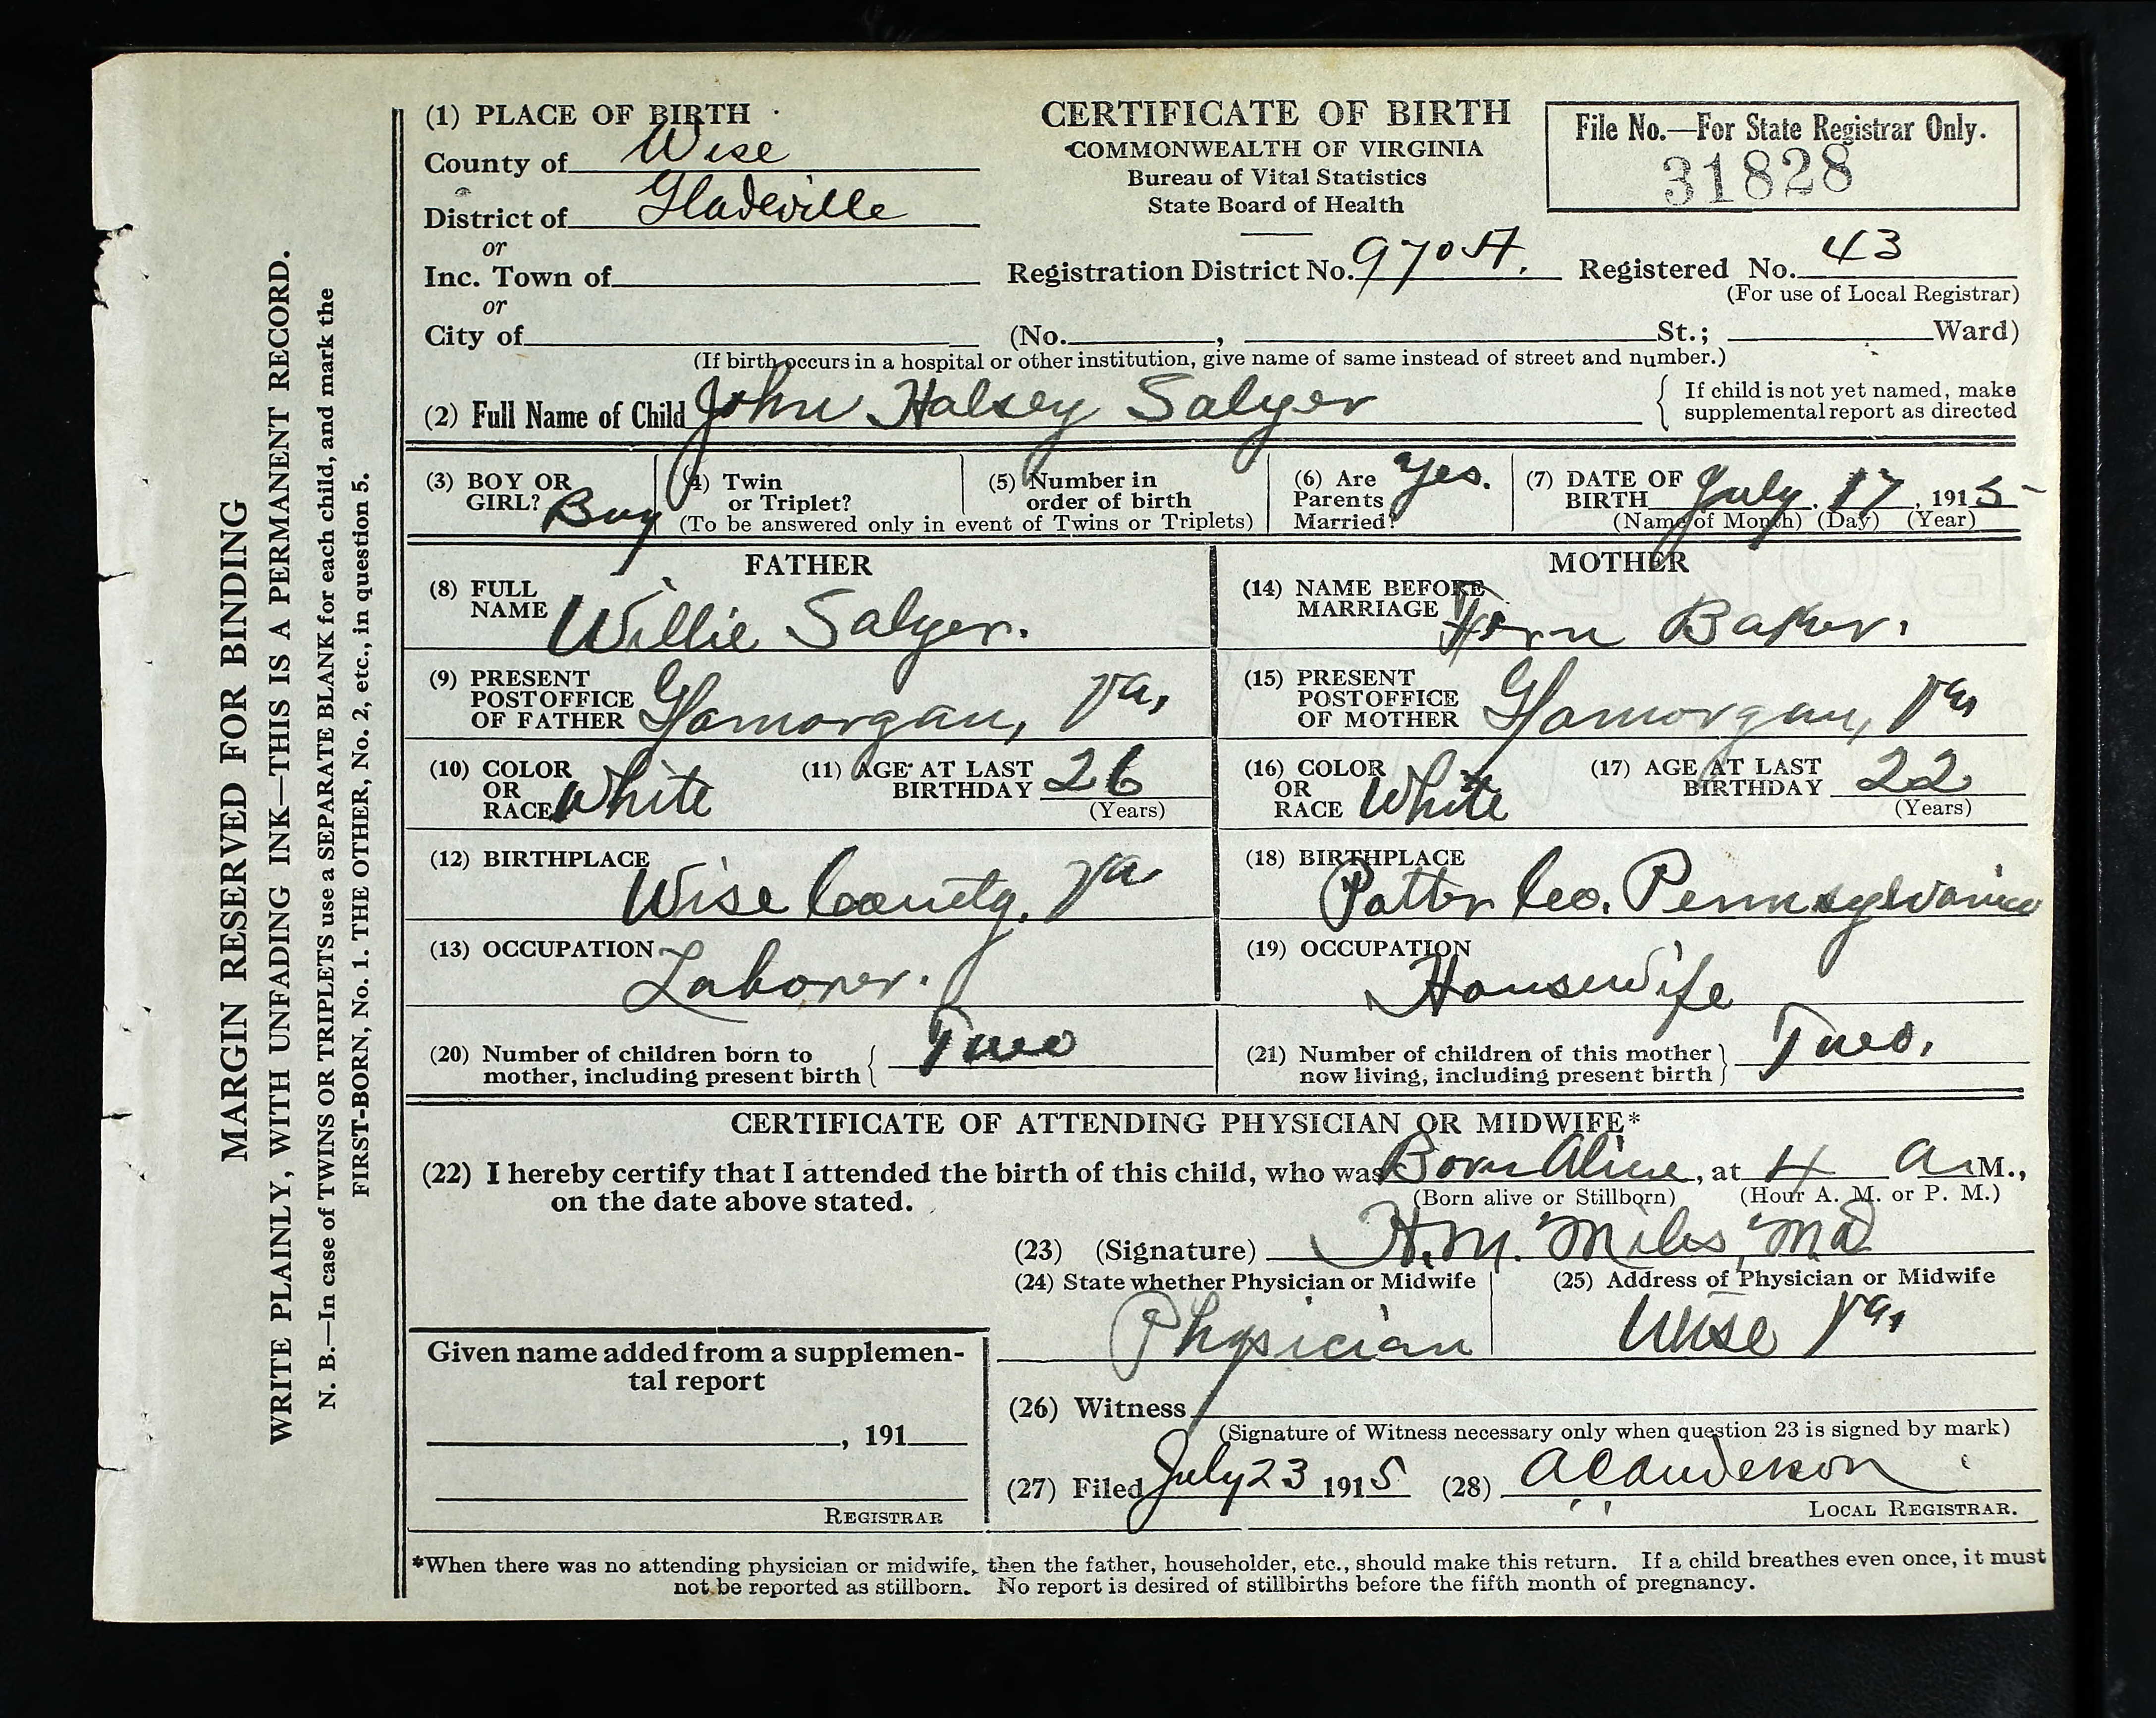 MARGIN RESERVED FOR BINDING
WRITE PLAINLY, WITH UNFADING INK—THIS IS A PERMANENT RECORD.
N. B.—In case of TWINS OR TRIPLETS use a SEPARATE BLANK for each child, and mark the
FIRST-BORN, No. 1. THE OTHER, No. 2, etc., in question 5.
(1) PLACE OF BIRTH
County of Wise
District of Gladeville
or
Inc. Town of
or
City of
CERTIFICATE OF BIRTH
COMMONWEALTH OF VIRGINIA
Bureau of Vital Statistics
State Board of Health
File No.—For State Registrar Only.
31828
Registration District No. 970A. Registered No. 43
(For use of Local Registrar)
(No. , St.; Ward)
(If birth occurs in a hospital or other institution, give name of same instead of street and number.)
(2) Full Name of Child John Halsey Salyer
{ If child is not yet named, make
supplemental report as directed
(3) BOY OR
GIRL? Boy
(4) Twin
or Triplet?
(5) Number in
order of birth
(To be answered only in event of Twins or Triplets)
(6) Are
Parents
Married? Yes.
(7) DATE OF
BIRTH July. 17, 1915
(Name of Month) (Day) (Year)
FATHER
(8) FULL
NAME Willie Salyer.
(9) PRESENT
POSTOFFICE
OF FATHER Glamorgan, Va,
(10) COLOR
OR
RACE White
(11) AGE AT LAST
BIRTHDAY 26
(Years)
(12) BIRTHPLACE
Wise County. Va
(13) OCCUPATION
Laborer.
(20) Number of children born to
mother, including present birth { Two
MOTHER
(14) NAME BEFORE
MARRIAGE Baker.
(15) PRESENT
POSTOFFICE
OF MOTHER Glamorgan, Va
(16) COLOR
OR
RACE White
(17) AGE AT LAST
BIRTHDAY 22
(Years)
(18) BIRTHPLACE
Potter Co. Pennsylvania
(19) OCCUPATION
Housewife
(21) Number of children of this mother
now living, including present birth } Two.
CERTIFICATE OF ATTENDING PHYSICIAN OR MIDWIFE*
(22) I hereby certify that I attended the birth of this child, who was Born Alive, at 4 a M.,
(Born alive or Stillborn) (Hour A. M. or P. M.)
on the date above stated.
(23) (Signature) H.M. Miles, MD
(24) State whether Physician or Midwife
Physician
(25) Address of Physician or Midwife
Wise Va,
Given name added from a supplemen-
tal report
, 191
REGISTRAR
(26) Witness
(Signature of Witness necessary only when question 23 is signed by mark)
(27) Filed July 23 1915 (28) A C Anderson
LOCAL REGISTRAR.
*When there was no attending physician or midwife, then the father, householder, etc., should make this return. If a child breathes even once, it must
not be reported as stillborn. No report is desired of stillbirths before the fifth month of pregnancy.